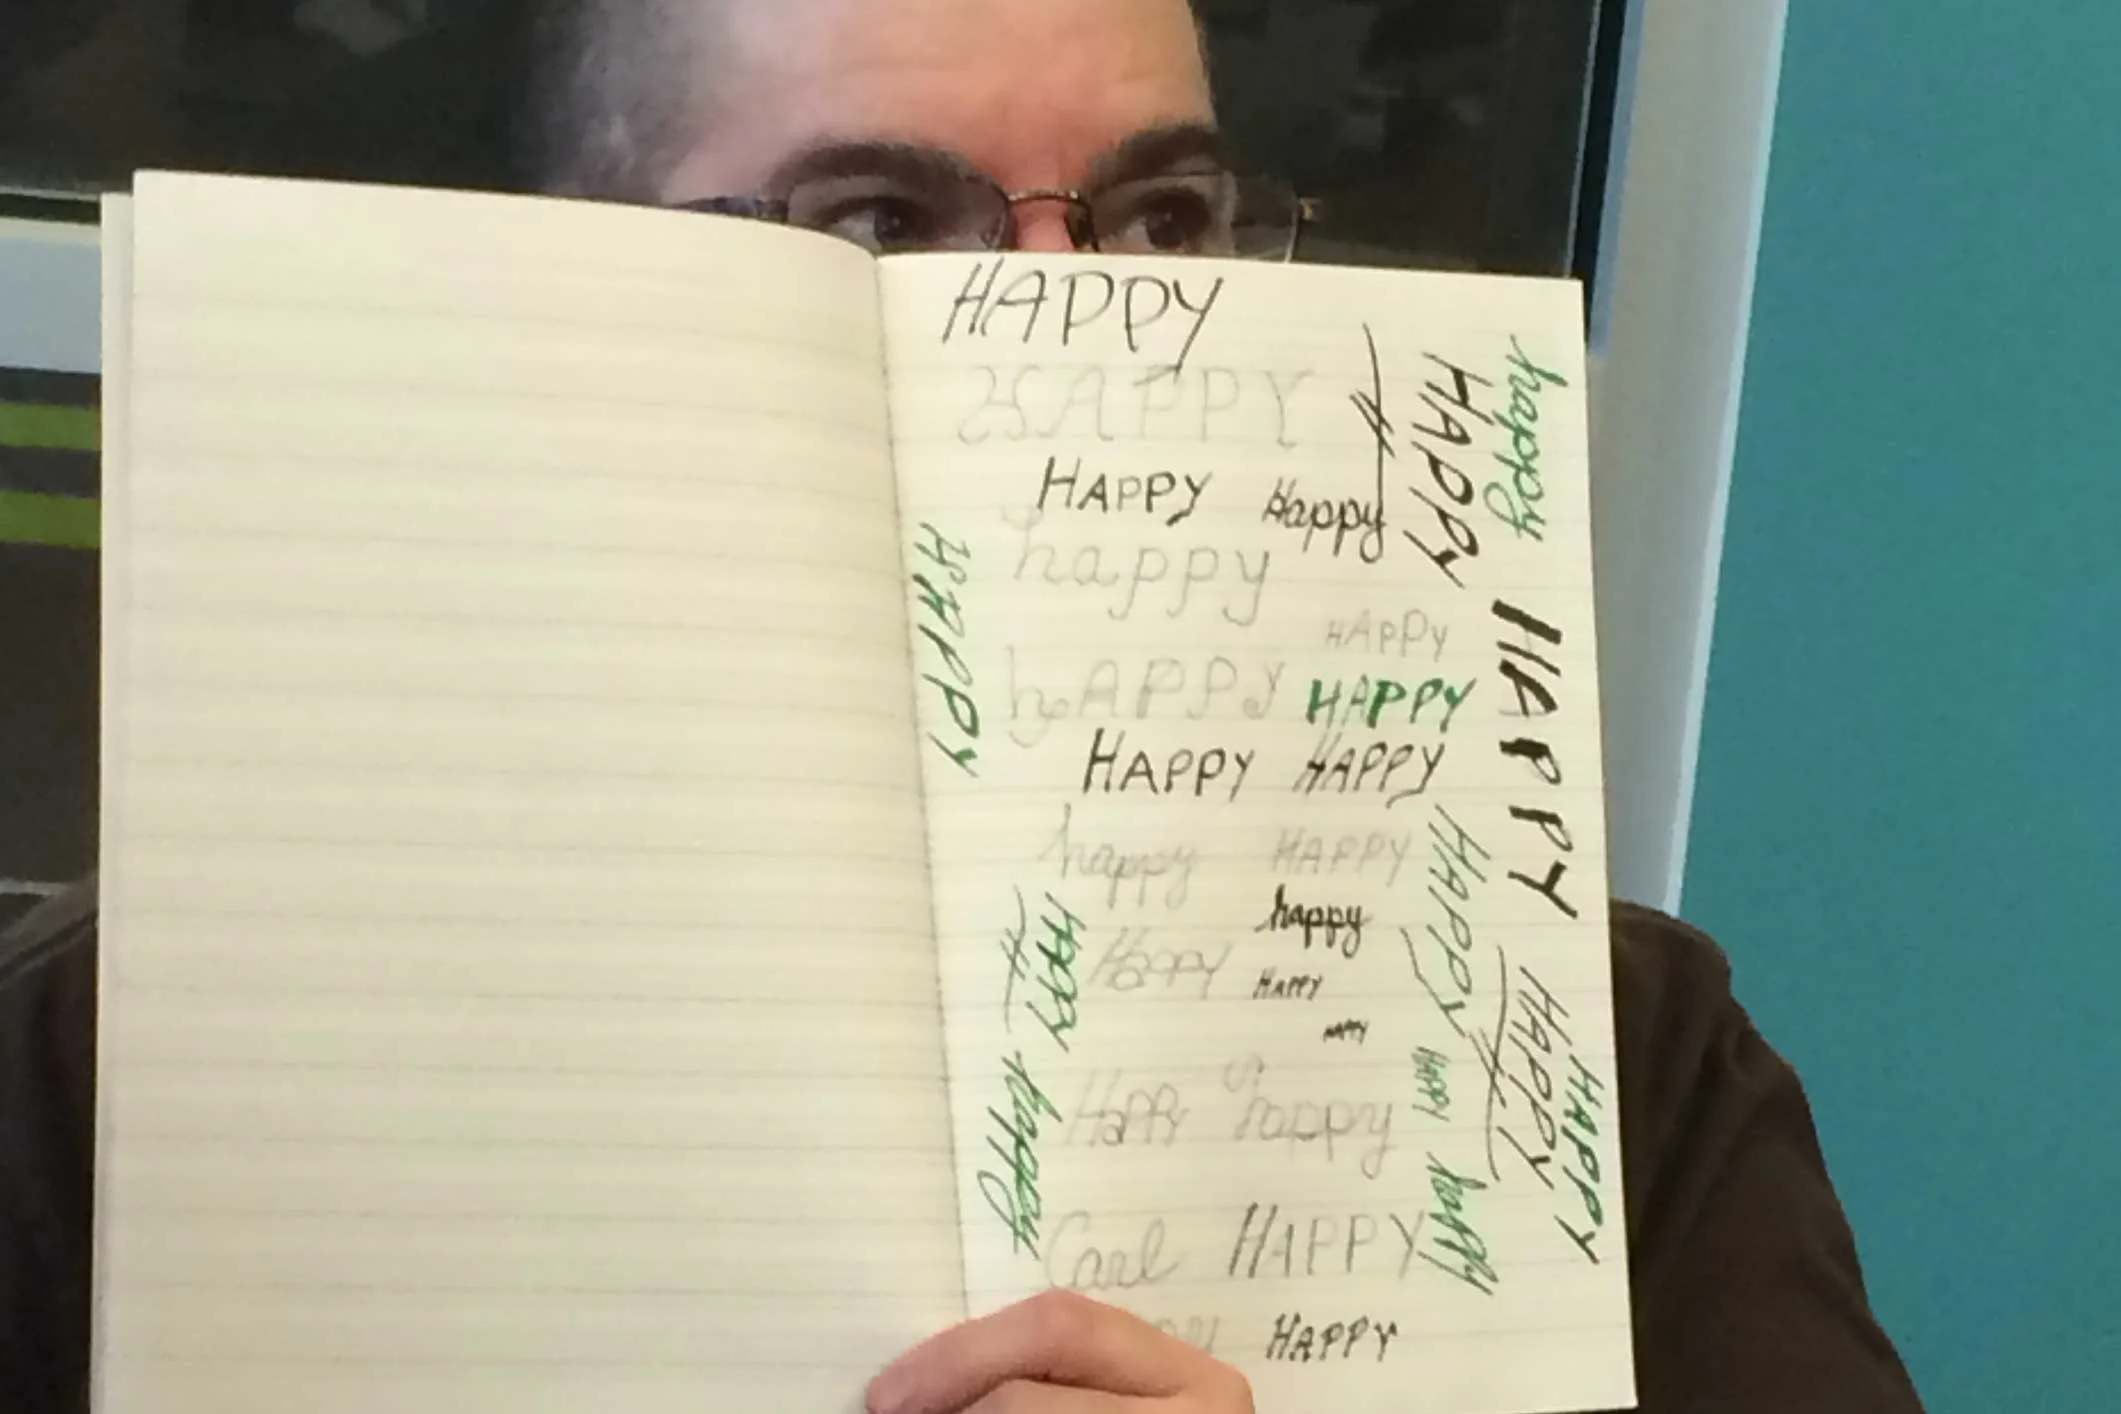 HAPPY
HAPPY
HAPPY Happy
happy
HAPPY
hAPPY HAPPY
HAPPY HAPPY
happy HAPPY
happy
Happy HAPPY
HAPPY
Happy happy
Carl HAPPY
HAPPY
HAPPY
HAPPY
happy
HAPPY
happy
HAPPY
HAPPY
HAPPY
HAPPY
HAPPY
happy